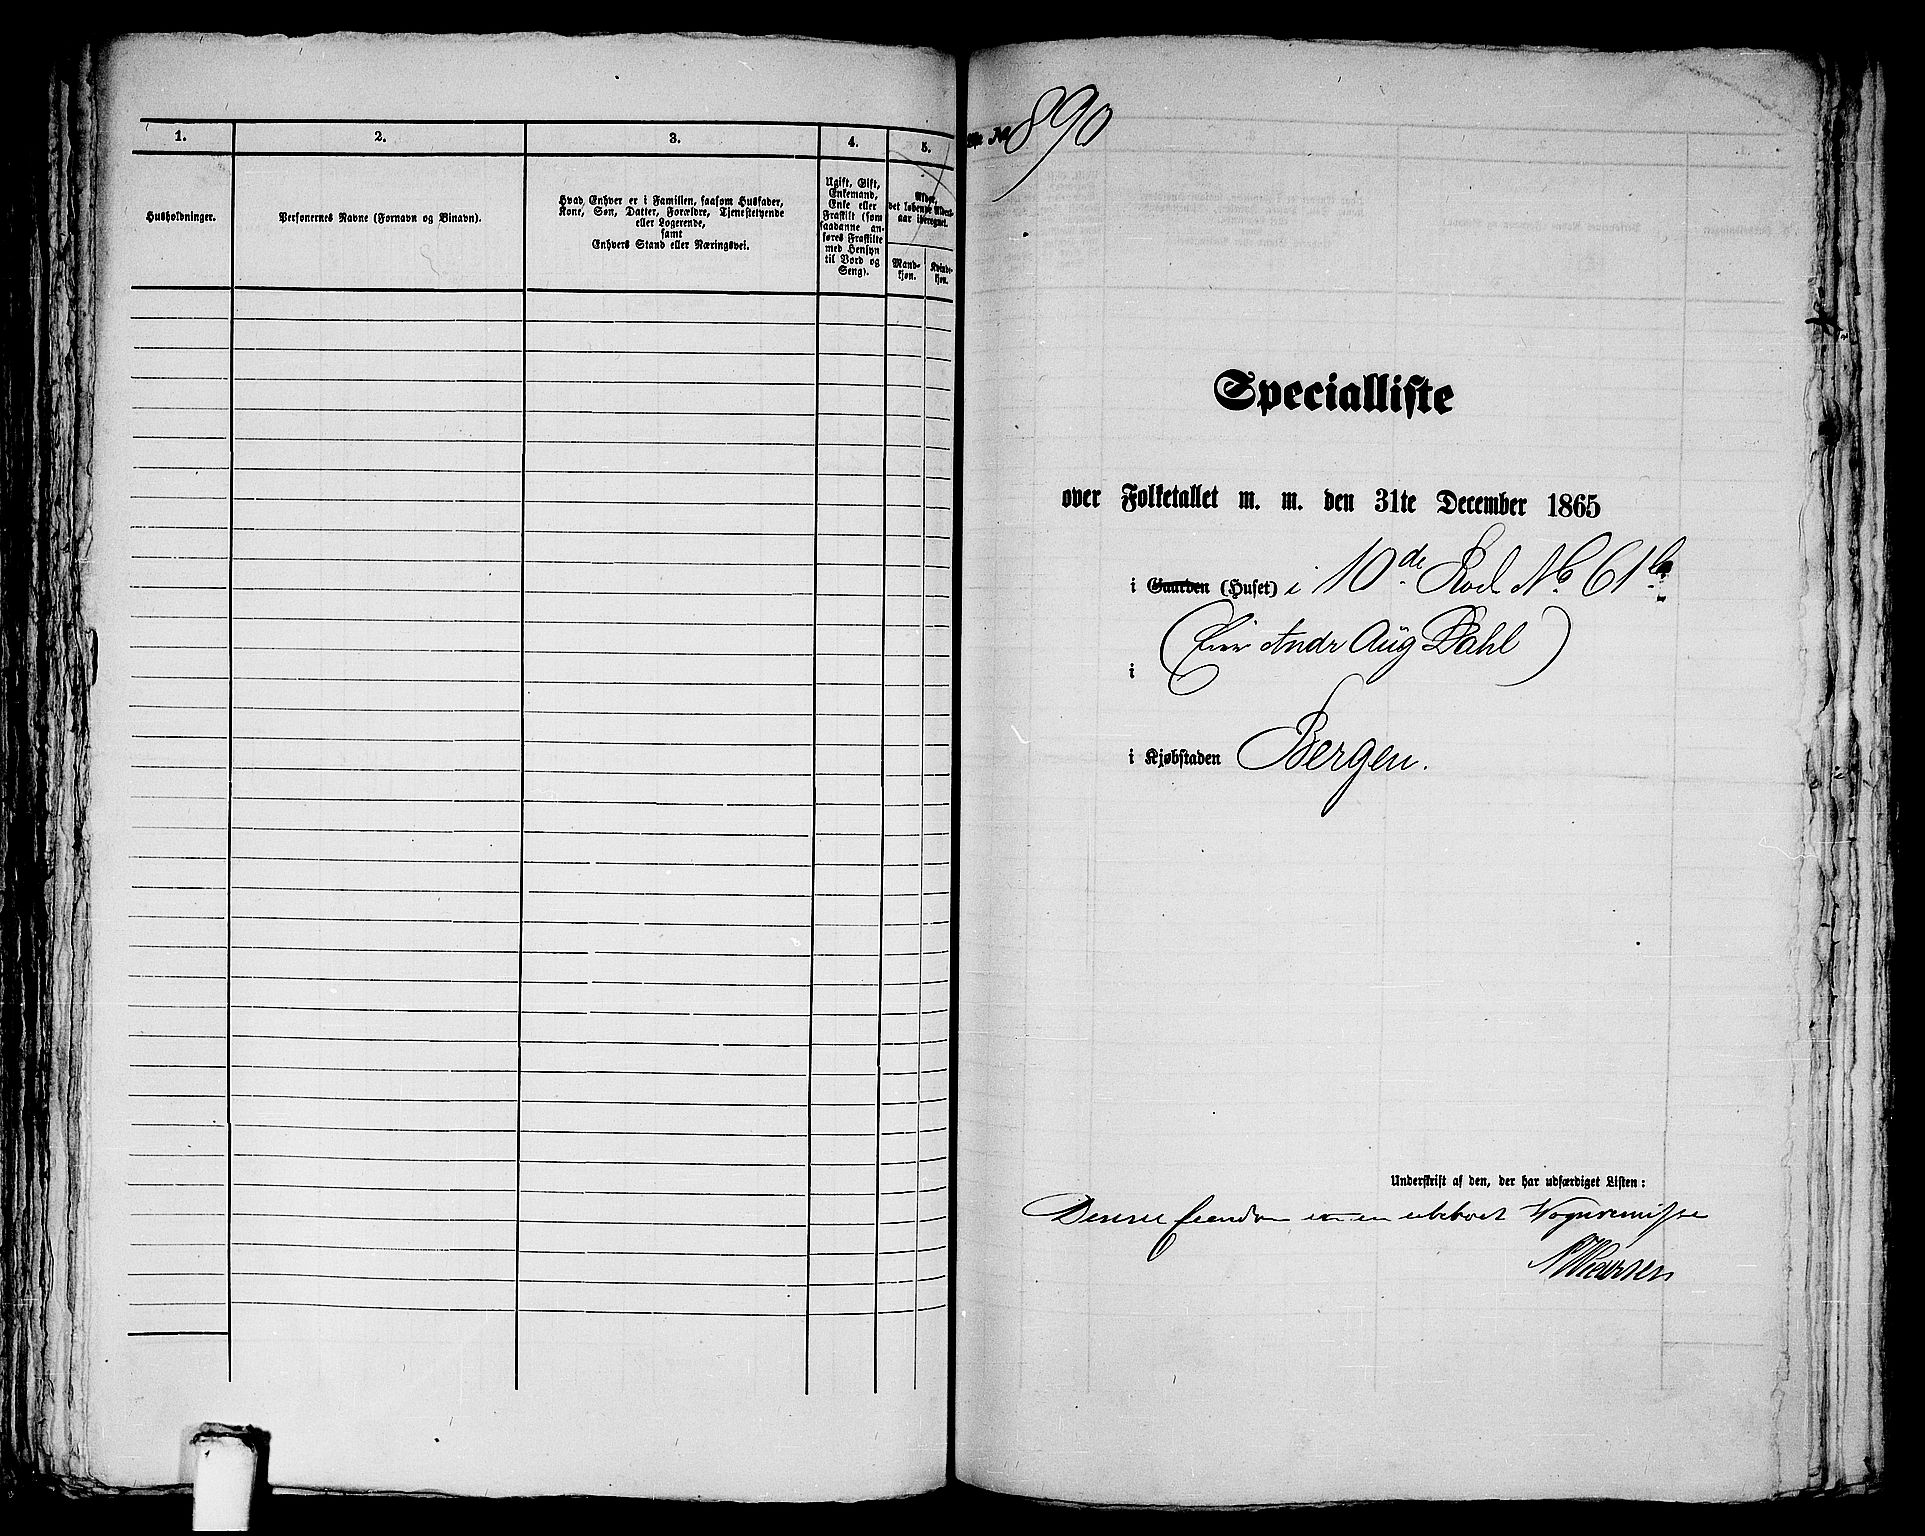 1.
2.
3.
4.
5.
Husholdninger.
Personernes Navne (Fornavn og Binavn).
Hvad Enhver er i Familien, saasom Husfader,
Kone, Søn, Datter, Forældre, Tjenestetyende
eller Logerende,
samt
Enhvers Stand eller Næringsvei.
Ugift, Gift,
Enkemand,
Enke eller
Fraskilt (som
saadanne an-
føres Fraskilte
med Hensyn
til Bord og
Seng).
Alder,
det løbende Alders-
aar iberegnet.
Mand-
kjøn.
Kvinde-
kjøn.
890
Specialliste
over Folketallet m. m. den 31te December 1865
i Gaarden (Huset) i 10de Rod No 61b
(Eier Andr Aug Dahl)
i
i Kjøbstaden Bergen.
Underskrift af den, der har udfærdiget Listen:
Denne Eiendom er en ubeboet Vognremisse